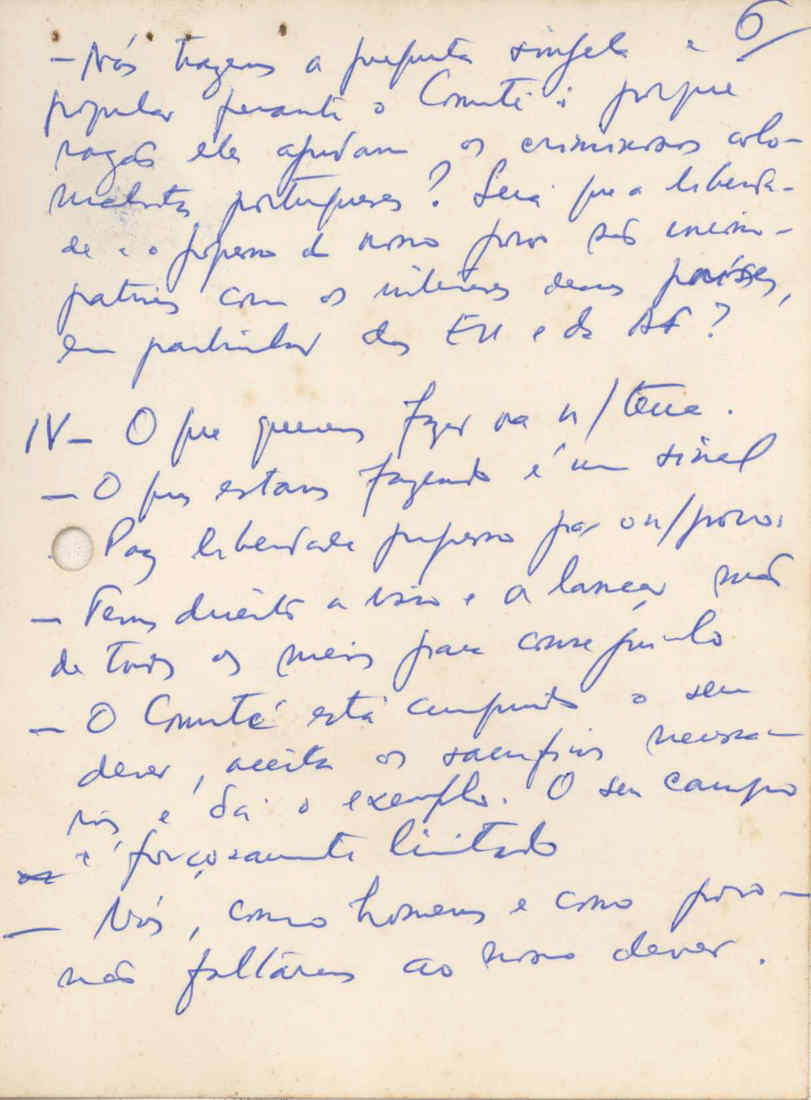 6
- Nós trazemos a pergunta singela e
popular perante o Comité: porque
razão eles ajudam os criminosos colo-
nialistas portugueses? Será que a liberda-
de e o progresso do nosso povo são incom-
patíveis com os interesses desses países,
em particular dos EU e da AF?
IV- O que queremos fazer na n/terra.
- O que estamos fazendo é um sinal
Paz liberdade progresso para o n/povo.
- Temos direito a isso e a lançar mão
de todos os meios para consegui-lo
- O Comité está cumprindo o seu
dever, aceita os sacrifícios necessá-
rios e dá o exemplo. O seu campo
é forçosamente limitado
- Nós, como homens e como povo -
não faltaremos ao nosso dever.